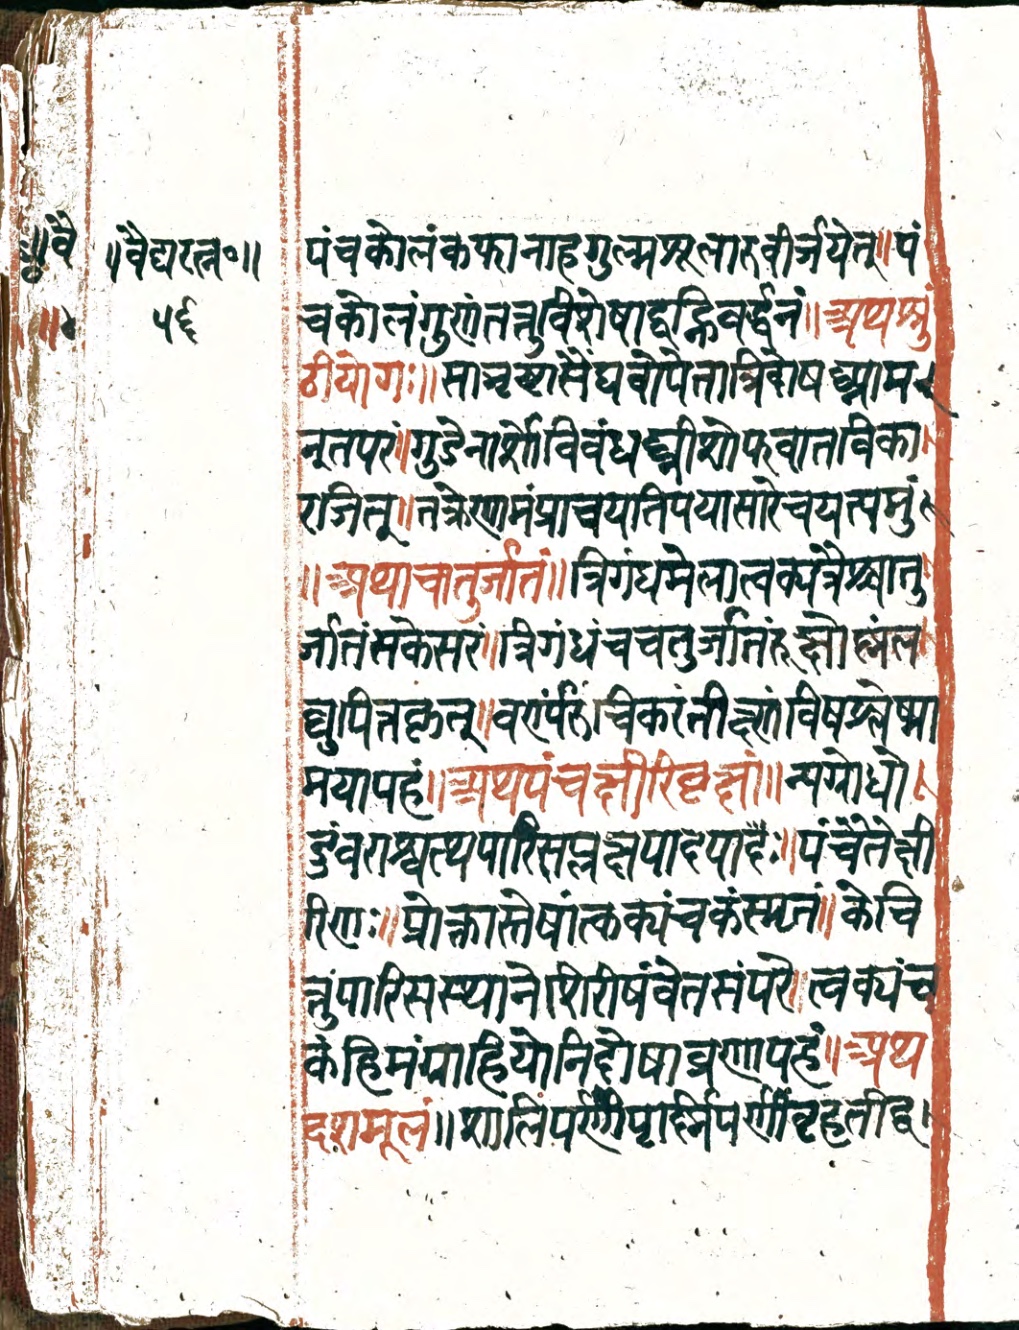 ॥वै
॥वैद्यरत्न॰॥
५६
पंचकोलंकफानाहगुल्मशूलारुचीर्जयेत्॥पं
चकोलंगुणंतत्तुविशेषाद्वह्निवर्द्धनं॥अथशुं
ठीयोगः॥साज्वृष्टासैंधवोपेतात्रिदोषघ्न्यामर
नूतपरं॥गुडेनार्शोविवंधघ्नीशोफवातविका
रजित्॥तक्रेणामंप्राचयतिपयासारेचयत्पमुं
॥अथाचातुर्जातं॥त्रिगंधमेलात्वक्पत्रैश्चातु
र्जातंसकेसरं॥त्रिगंधंचचतुर्जातंरुक्षोह्मंल
घ्युपित्तकृत्॥वर्ण्यंरुचिकरंतीक्ष्णंविषश्लेष्मा
मयापहं॥अथपंचक्षीरिवृक्षां॥न्यग्रोधो
डुंवराश्वत्थपारिसप्लक्षपादपाद्दैः॥पंचैतेक्षी
रिणः॥प्रोक्तास्तेषांत्वक्यंचकंस्मृतं॥केचि
त्तुंपारिसस्थानेशिरीषंवेतसंपरे॥त्वक्यंच
कंहिमंग्राहियोनिदोषाव्रणापहं॥अथ
दशमूलं॥शालिपर्णीपृश्निपर्णीवृहतीद्व